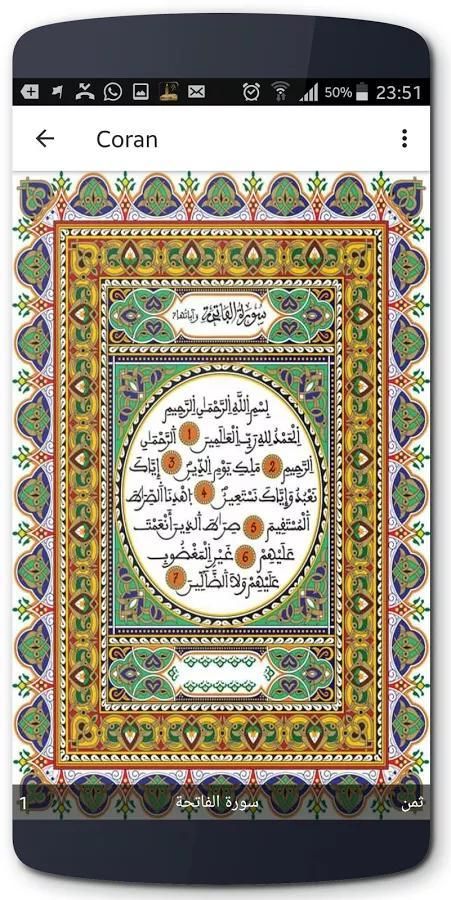 50% 23:51
Coran
سورة الفاتحة وآياتها 7
بِسْمِ اللَّهِ الرَّحْمَٰنِ الرَّحِيمِ
الْحَمْدُ لِلهِ رَبِّ الْعَٰلَمِينَ 1 الرَّحْمَٰنِ
الرَّحِيمِ 2 مَلِكِ يَوْمِ الدِّينِ 3 إِيَّاكَ
نَعْبُدُ وَإِيَّاكَ نَسْتَعِينُ 4 اهْدِنَا الصِّرَٰطَ
الْمُسْتَقِيمَ 5 صِرَٰطَ الذِينَ أَنْعَمْتَ
عَلَيْهِمْ 6 غَيْرِ الْمَغْضُوبِ
عَلَيْهِمْ وَلَا الضَّآلِّينَ 7
ثمن سورة الفاتحة 1